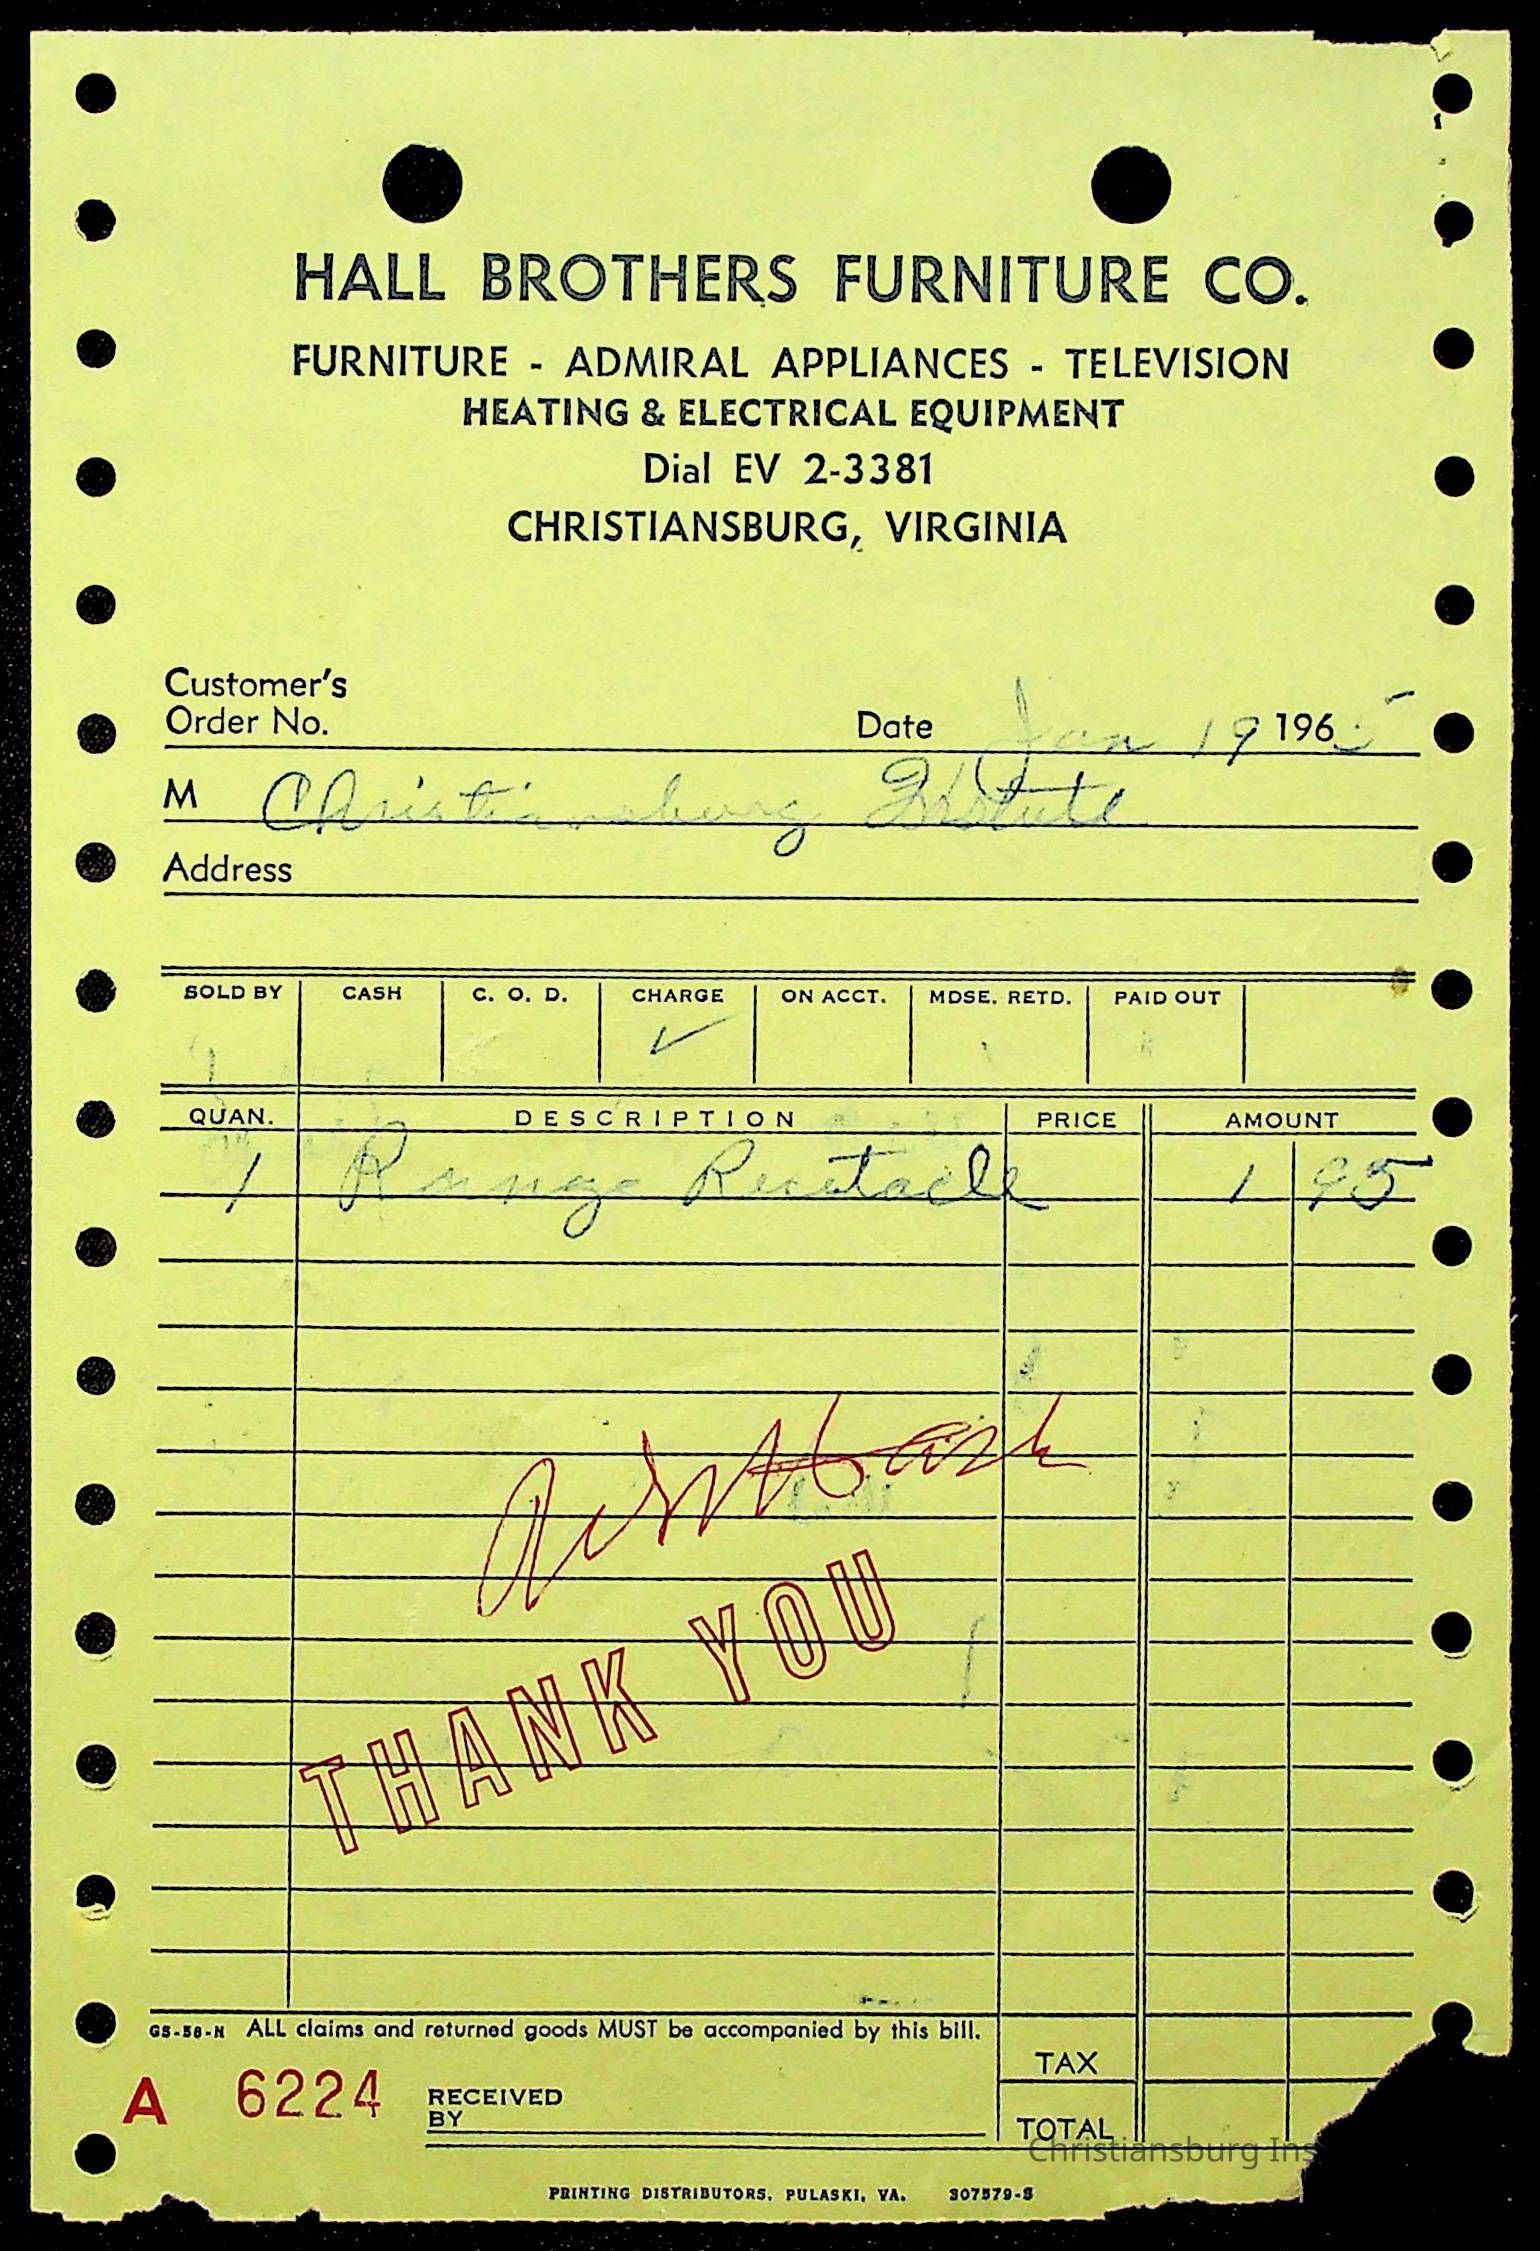 HALL BROTHERS FURNITURE CO.
FURNITURE - ADMIRAL APPLIANCES - TELEVISION
HEATING & ELECTRICAL EQUIPMENT
Dial EV 2-3381
CHRISTIANSBURG, VIRGINIA
Customer's
Order No. Date Jan 19 1965
M Christiansburg Institute
Address
SOLD BY CASH C. O. D. CHARGE ON ACCT. MDSE. RETD. PAID OUT
✓
QUAN. DESCRIPTION PRICE AMOUNT
1 Range Recetacle 1 95
THANK YOU
GS-58-N ALL claims and returned goods MUST be accompanied by this bill.
TAX
A 6224 RECEIVED
BY
TOTAL
Christiansburg Ins
PRINTING DISTRIBUTORS, PULASKI, VA. 307579-S